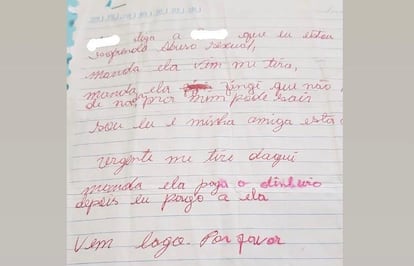 diga a que eu estou
sofrendo abuso sexual,
manda ela vem me tira,
manda ela fingi que não
de nos, pro mim pode sair
sou eu e minha amiga esta
urgente me tire daqui
manda ela paga o dinheiro
depois eu pago a ela
Vem logo. Por favor